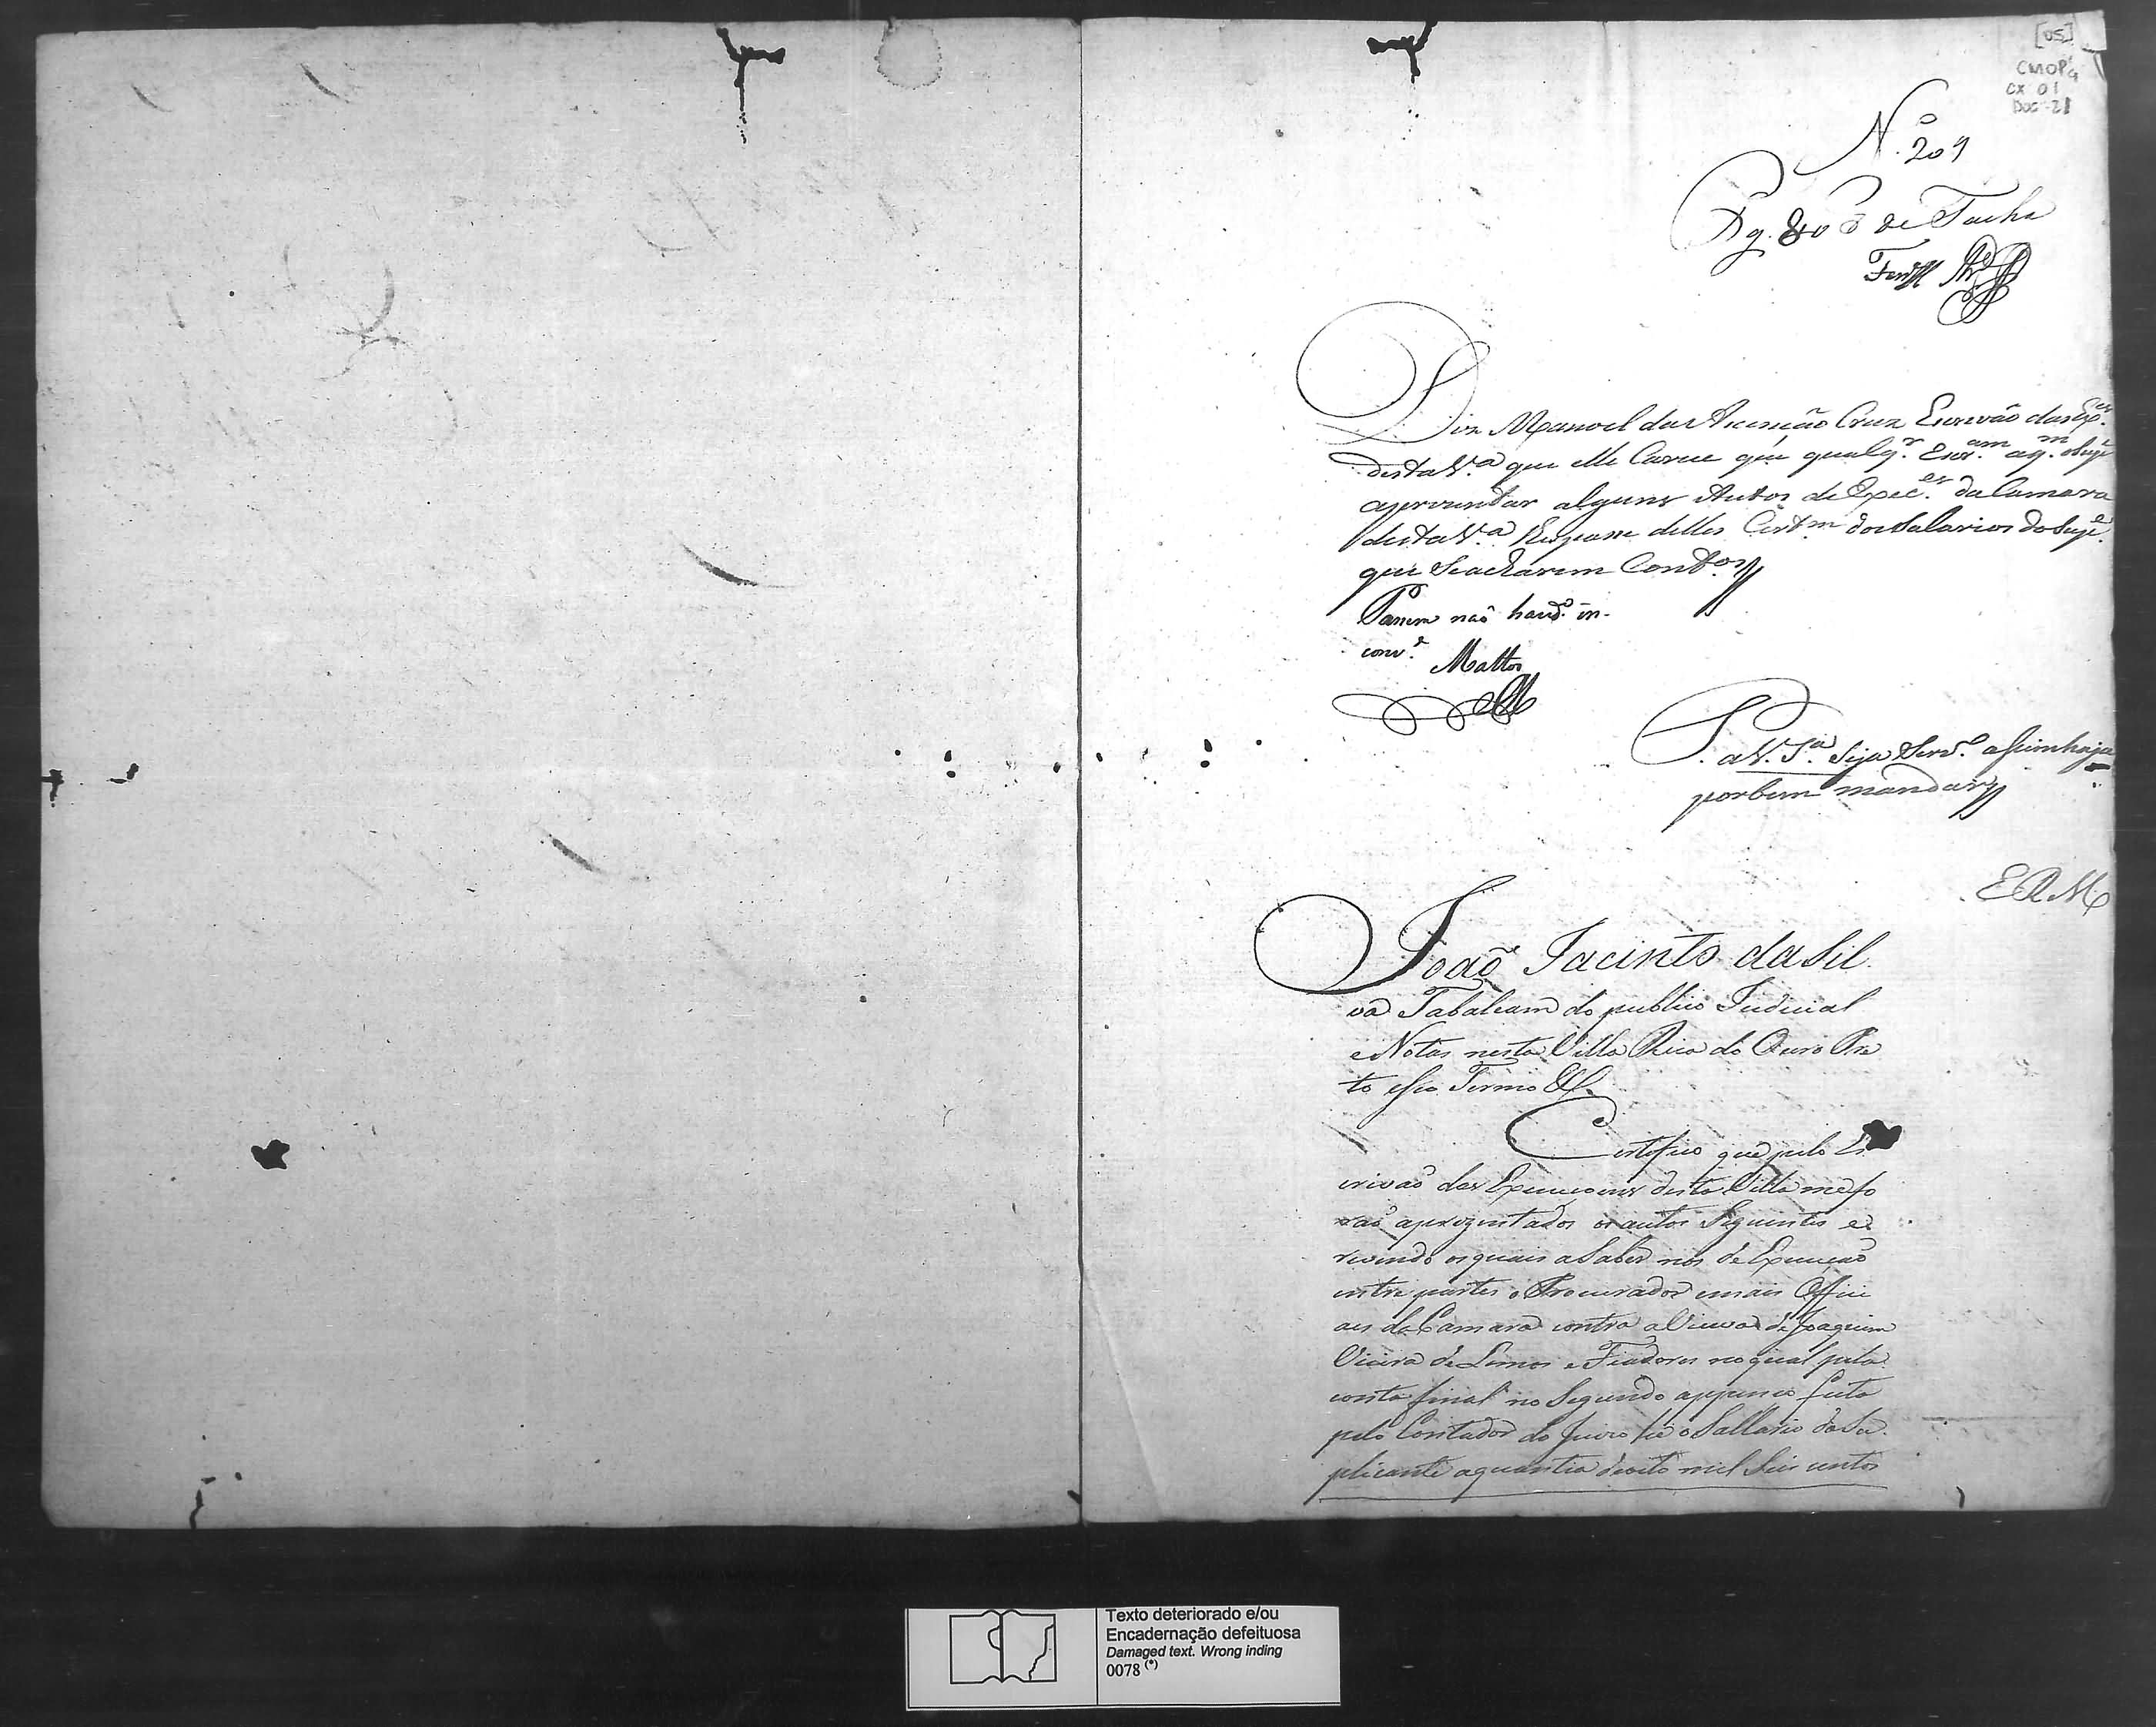 [05]
CMOP
CX 01
Doc-21
N.º 209
Pg. 80 rs de Tacha
Diz Manoel da Ascenção Cruz Escrivão das Ex.es
desta V.ª que elle Carece que qualq.r Escr.am aq.m o Sup.e
aprezentar alguns Autos de Exec.es da Camara
desta V.ª lhe passe delles Cert.m dos Salarios do Sup.e
que Seacharem Contos
Passem não havd.º in-
conv.e
Mattos
P. a V. S.ª Seja Serv.º assim haja
por bem mandar
E R M
João Jacinto da Sil
va Tabaliam do publico Judicial
e Notas nesta Villa Rica do Ouro Pre
to e seu Termo &.
Certifico que pelo Es
crivaõ das Execucoens desta Villa me fo
raõ aprezentados os autos Seguintes e
revendo os quais a Saber nos de Execuçaõ
entre partes o Procurador e mais Offici
aes da Camara contra a Viuva de Joaquim
Vieira de Lemos e Fiadores no qual pela
conta final no Segundo appenço feita
pelo Contador do Juizo he o Sallario do Su
plicante a quantia de oito mil Seis centos
Texto deteriorado e/ou
Encadernação defeituosa
Damaged text. Wrong inding
0078 (*)